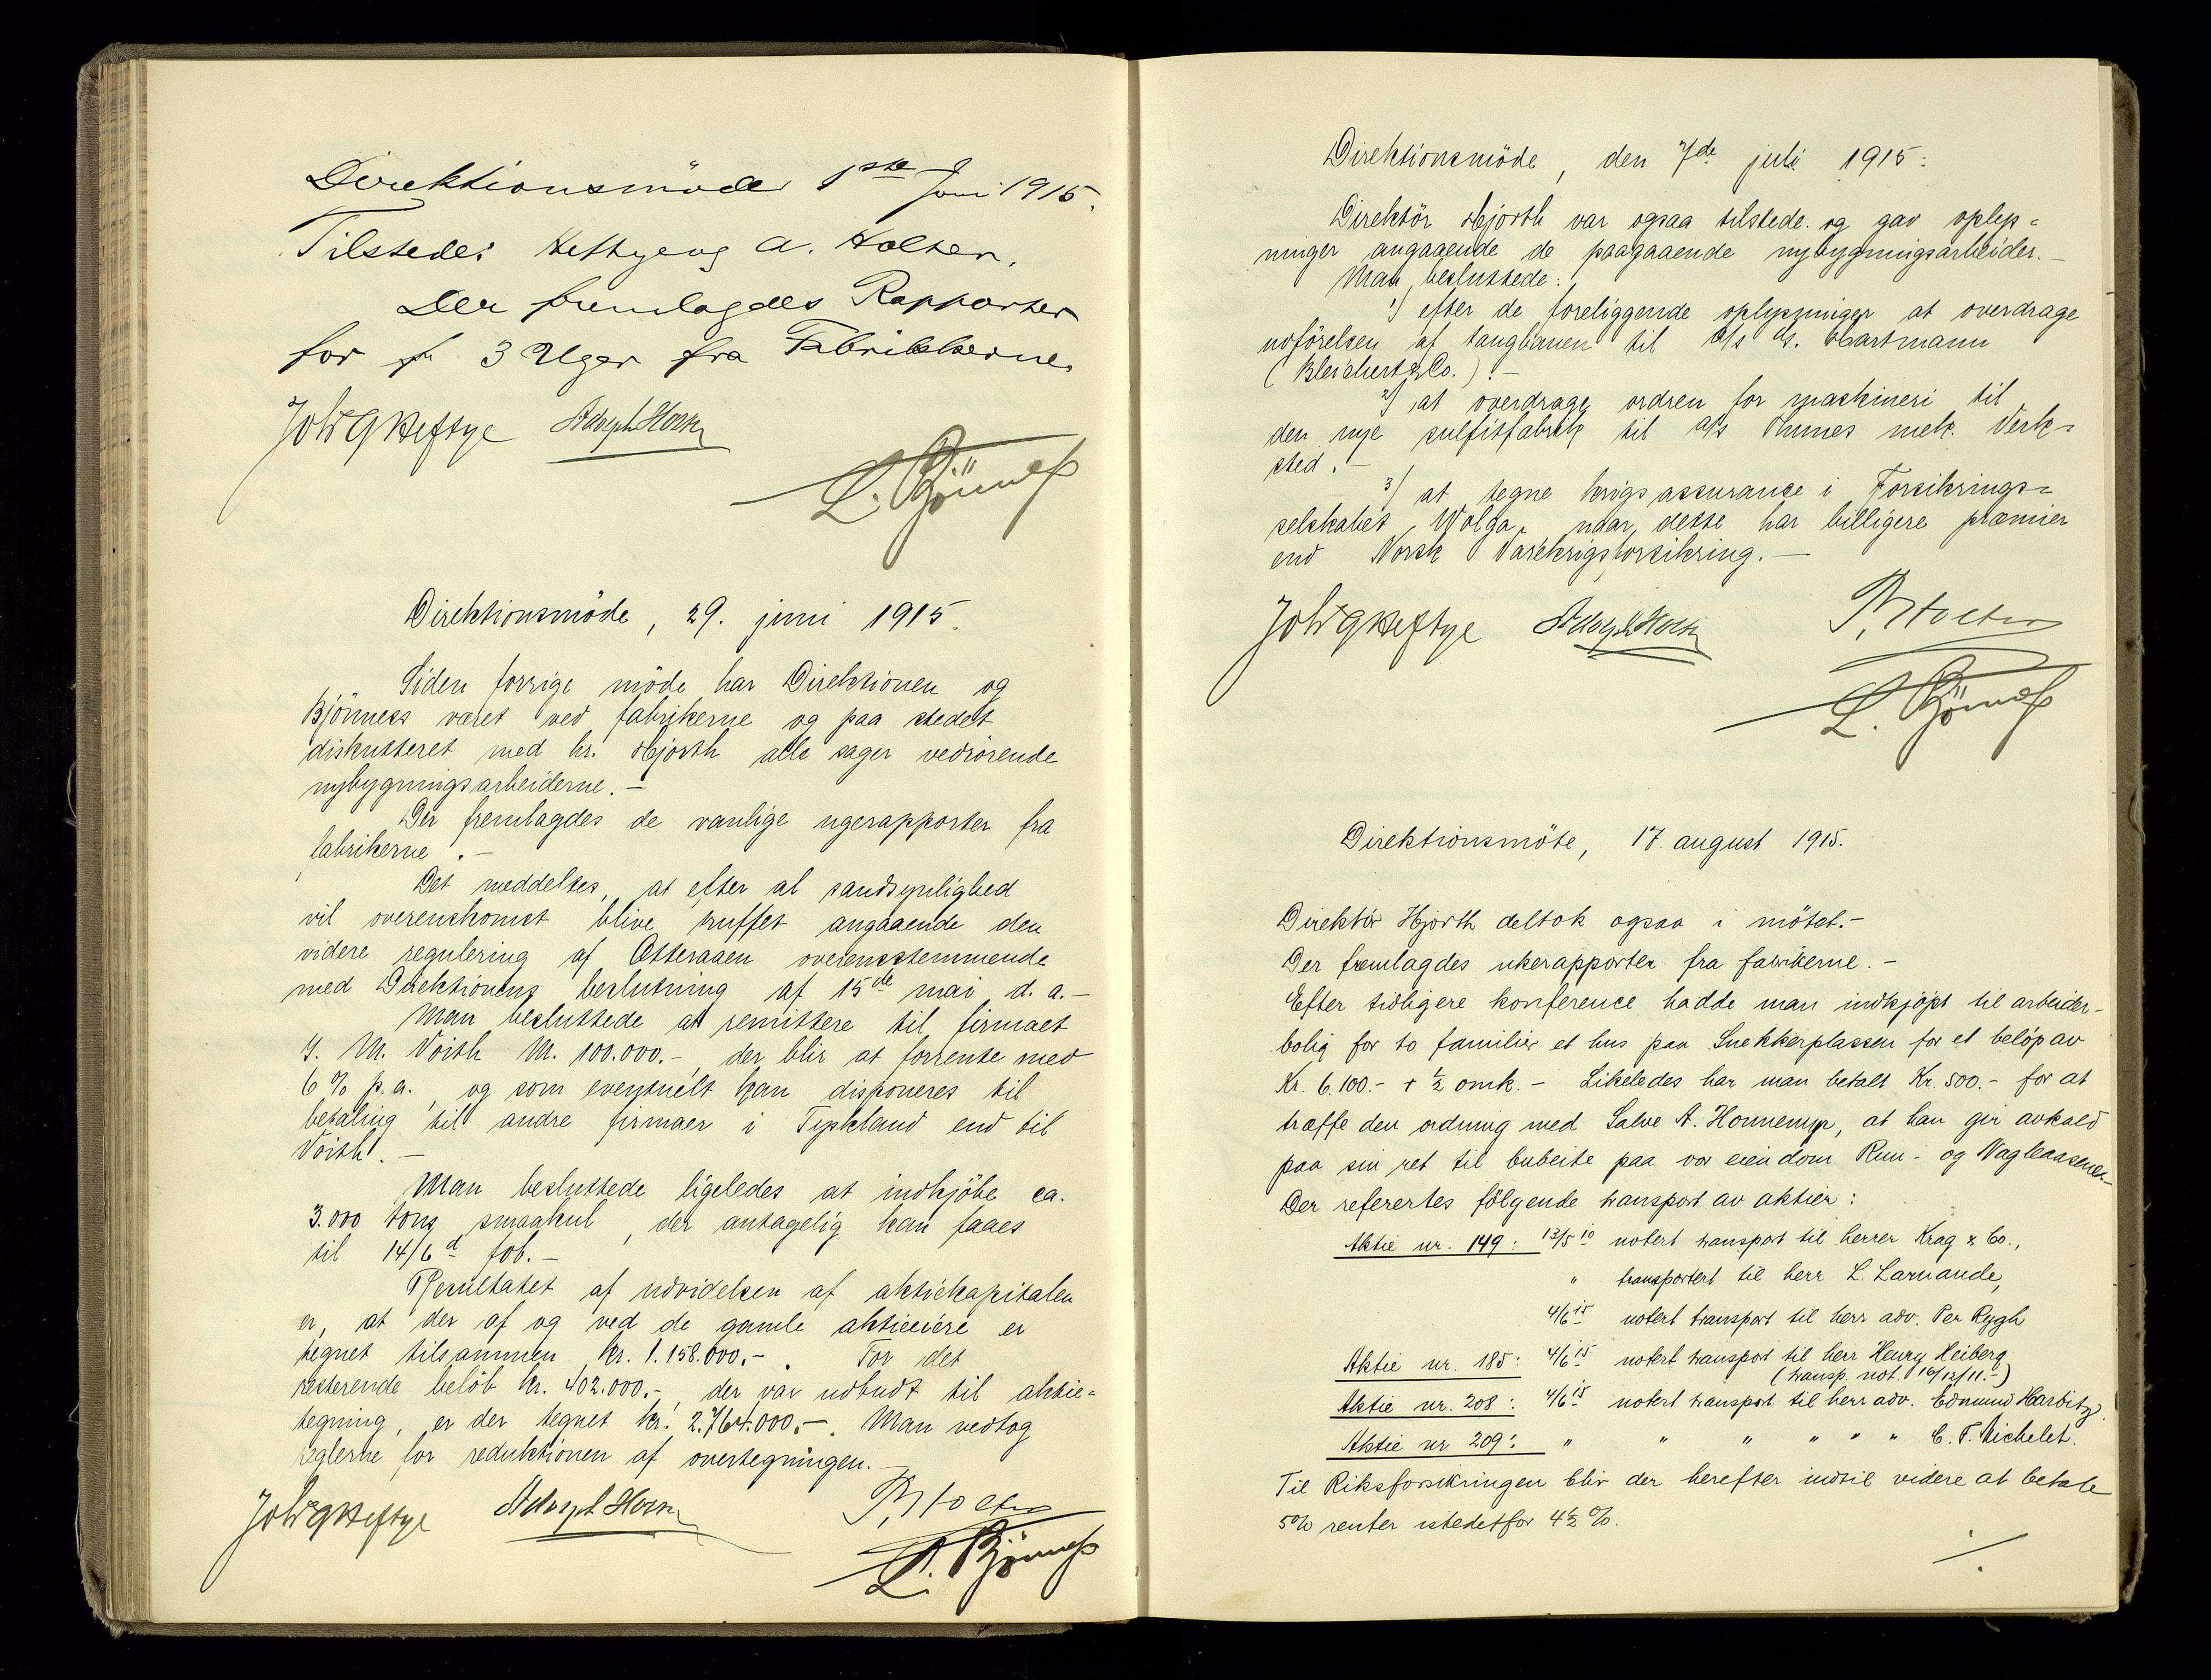 Direktionsmöde 1ste Juni 1915.
Tilstede: Heftye og A. Holter.
Der fremlagdes Rapporter
for 3 Uger fra Fabrikkerne.
Joh's G Heftye Adolph Hoen
L. Bjönness
Direktionsmöde, 29. juni 1915.
Siden forrige möde har Direktionen og
Bjönness været ved fabrikerne og paa stedet
diskutteret med hr. Hjorth alle sager vedrörende
nybygningsarbeiderne.-
Der fremlagdes de vanlige ugerapporter fra
fabrikerne.-
Det meddeltes, at efter al sandsynlighed
vil overenskomst blive truffet angaaende den
videre regulering af Otteraaen overensstemmende
med Direktionens beslutning af 15de mai d. a.-
Man besluttede at remittere til firmaet
J. M. Voith M. 100.000.- der blir at forrente med
6% p.a., og som eventuelt kan disponeres til
betaling til andre firmaer i Tyskland end til
Voith.-
Man besluttede ligeledes at indkjöbe ca.
3.000 tons smaakul, der antagelig kan faaes
til 14/6d fob.-
Resultatet af udvidelsen af aktiekapitalen
er, at der af og ved de gamle aktieeiere er
tegnet tilsammen kr. 1.158.000.-. For det
resterende belöb kr. 402.000.-, der var udbudt til aktie=
tegning, er der tegnet kr. 2.764.000.-. Man vedtog
reglerne for reduktionen af overtegningen.-
Joh's G Heftye Adolph Hoen P. Holter
L. Bjönness
Direktionsmöde, den 7de juli 1915:
Direktör Hjorth var ogsaa tilstede og gav oplys=
ninger angaaende de paagaaende nybygningsarbeider.-
Man besluttede:
1) efter de foreliggende oplysninger at overdrage
udförelsen af taugbanen til A/s G. Hartmann
(Bleichert & Co.).-
2) at overdrage ordren for maskineri til
den nye sulfitfabrik til A/s Thunes mek. Verk=
sted.-
3) at tegne krigsassurance i Forsikrings=
selskabet "Wolga", naar dette har billigere præmier
end Norsk Varekrigsforsikring.-
Joh's G Heftye Adolph Hoen P. Holter
L. Bjönness
Direktionsmöte, 17. august 1915.
Direktör Hjorth deltok ogsaa i mötet.-
Der fremlagdes ukerapporter fra fabrikerne.-
Efter tidligere konference hadde man indkjöpt til arbeider-
bolig for to familier et hus paa Snekkerplassen for et belöp av
Kr. 6.100.- + ½ omk.- Likeledes har man betalt Kr. 500.- for at
træffe den ordning med Salve A. Honnemyr, at han gir avkald
paa sin ret til bubeite paa vor eiendom Ruu- og Vagleaasene.-
Der refertes fölgende transport av aktier:
Aktie nr. 149: 13/5 10 notert transport til herrer Krag & Co.,
" transportert til herr L. Larnaude,
4/6 15 notert transport til herr adv. Per Rygh
Aktie nr. 185: 4/6 15 notert transport til herr Henry Heiberg
(transp. not. 16/12/11.-)
Aktie nr. 208: 4/6 15 notert transport til herr adv. Edmund Harbitz.
Aktie nr 209: " " " " " " C. F. Michelet.
Til Riksforsikringen blir der herefter indtil videre at betale
5% renter istedetfor 4½%.
./.